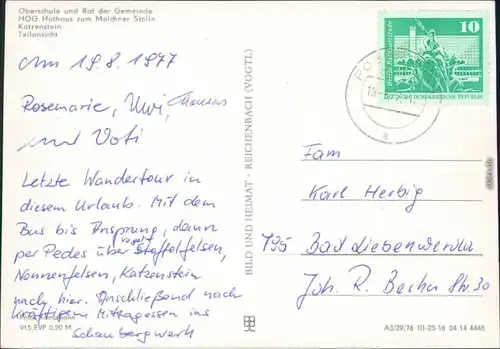 Oberschule und Rat der Gemeinde
HOG Huthaus zum Molchner Stolln
Katzenstein
Teilansicht
Am 19.8.1977
Rosemarie, Uwi, Thomas
und Vati
Letzte Wandertour in
diesem Urlaub. Mit dem
Bus bis Ansprung, dann
per Pedes über Vogel
Stoffelfelsen,
Nonnenfelsen, Katzenstein
nach hier. Anschließend nach
kräftigem Mittagessen ins
Schaubergwerk
915 EVP 0,20 M
BILD UND HEIMAT · REICHENBACH (VOGTL)
10
DEUTSCHE DEMOKRATISCHE REPUBLIK
a
Fam
Karl Herbig
795 Bad Liebenwerda
Joh. R. Becher Str. 30
A3/29/76 III-25-16 04 14 4440